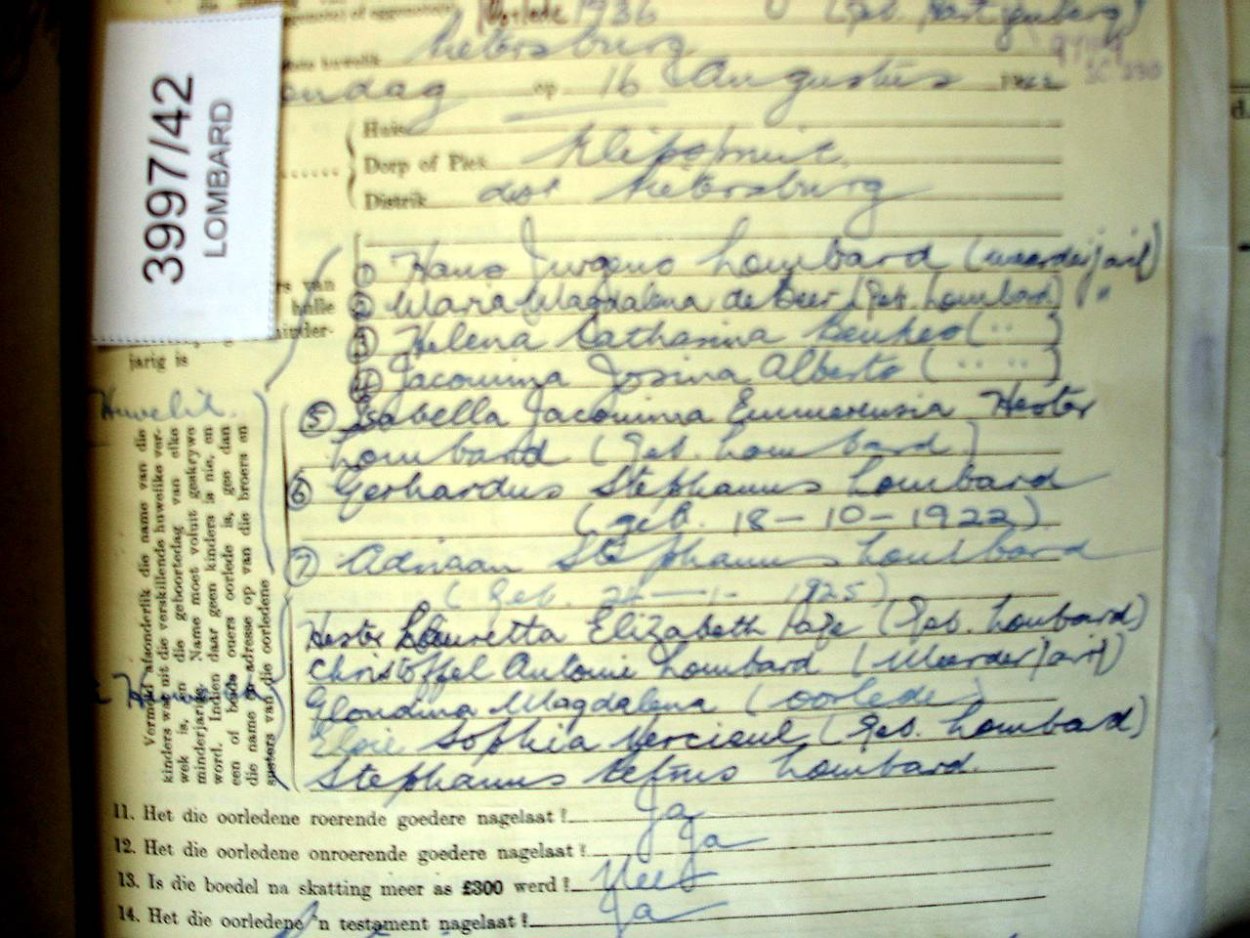 3997/42
LOMBARD
Oorlede 1936
Pietersburg
op 16 Augustus
Huis
Dorp of Plek
Distrik dist Pietersburg
jarig is
① Hans Jurgens Lombard (meerderjarig)
② Maria Magdalena de Beer (Geb. Lombard) "
③ Helena Catharina Beukes ( " )
④ Jacomina Josina Alberts ( " " )
Huwelik.
⑤ Isabella Jacomina Emmerensia Hester
Lombard (Geb. Lombard)
⑥ Gerhardus Stephanus Lombard
(geb. 18-10-1922)
⑦ Adriaan Stephanus Lombard
(Geb. 1925)
Hester Louretta Elizabeth (Geb. Lombard)
Christoffel Antonie Lombard (Meerderjarig)
Magdalena (oorlede)
Elsie Sophia (Geb. Lombard)
Stephanus Lombard.
Vermeld afsonderlik die name van die
kinders wat uit die verskillende huwelike ver-
wek is, en die geboortedag van elke
minderjarig. Name moet voluit geskrywe
word. Indien daar geen kinders is nie, en
een of beide ouers oorlede is, gee dan
die name en adresse op van die broers en
susters van die oorledene
11. Het die oorledene roerende goedere nagelaat? Ja
12. Het die oorledene onroerende goedere nagelaat? Ja
13. Is die boedel na skatting meer as £300 werd? Meer
14. Het die oorledene 'n testament nagelaat? Ja